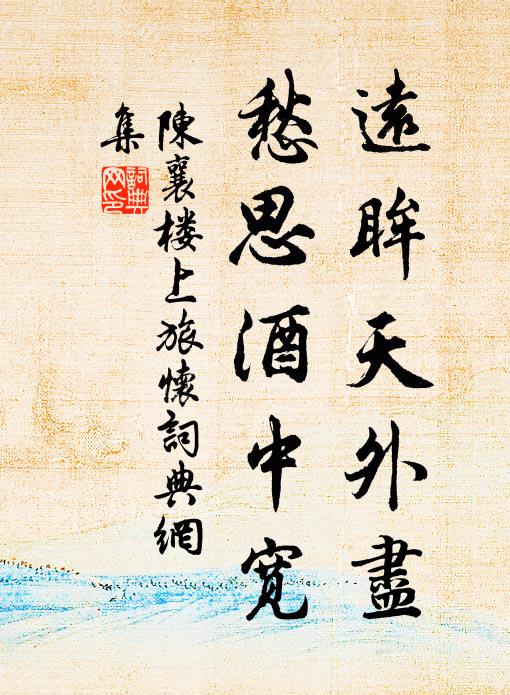 遠眸天外盡
愁思酒中寬
陳襄楼上旅懷詞典網
集
詞典网印